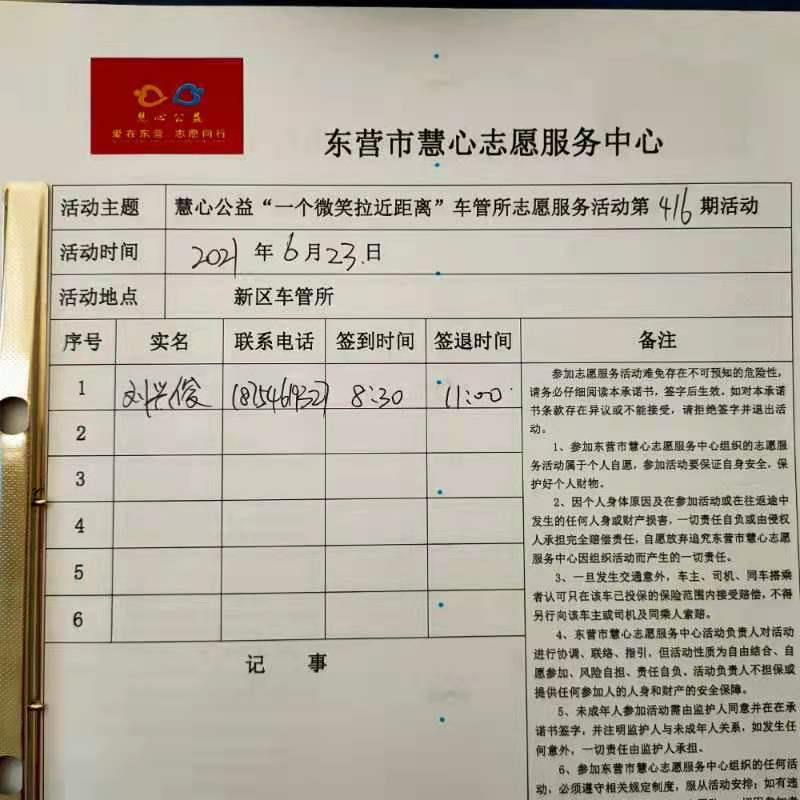 慧心公益
爱在东营 志愿同行
东营市慧心志愿服务中心
活动主题 慧心公益“一个微笑拉近距离”车管所志愿服务活动第416期活动
活动时间 2021年6月23日
活动地点 新区车管所
序号 实名 联系电话 签到时间 签退时间 备注
1 刘兴俊 18254619327 8:30 11:00
2
3
4
5
6
记 事
参加志愿服务活动难免存在不可预知的危险性,
请务必仔细阅读本承诺书,签字后生效。如对本承诺
书条款存在异议或不能接受,请拒绝签字并退出活
动。
1、参加东营市慧心志愿服务中心组织的志愿服
务活动属于个人自愿,参加活动要保证自身安全,保
护好个人财物。
2、因个人身体原因及在参加活动或在往返途中
发生的任何人身或财产损害,一切责任自负或由侵权
人承担完全赔偿责任,自愿放弃追究东营市慧心志愿
服务中心因组织活动而产生的一切责任。
3、一旦发生交通意外,车主、司机、同车搭乘
者认可只在该车已投保的保险范围内接受赔偿,不得
另行向该车主或司机及同乘人索赔。
4、东营市慧心志愿服务中心活动负责人对活动
进行协调、联络、指引,但活动性质为自由结合、自
愿参加、风险自担、责任自负。活动负责人不担保或
提供任何参加人的人身和财产的安全保障。
5、未成年人参加活动需由监护人同意并在在承
诺书签字,并注明监护人与未成年人关系,如发生任
何意外,一切责任由监护人承担。
6、参加东营市慧心志愿服务中心组织的任何活
动,必须遵守相关规定制度,服从活动安排;如有违